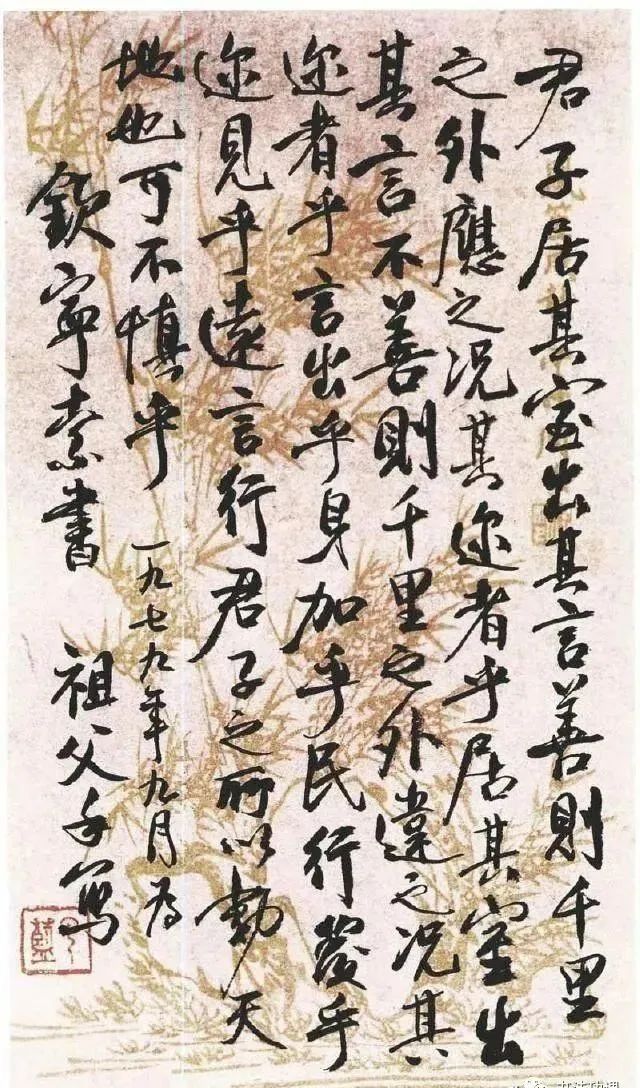 君子居其室出其言善則千里
之外應之況其迩者乎居其室出
其言不善則千里之外違之況其
迩者乎言出乎身加乎民行發乎
迩見乎遠言行君子之所以動天
地也可不慎乎 一九七九年九月为
欽寧索書 祖父手寫